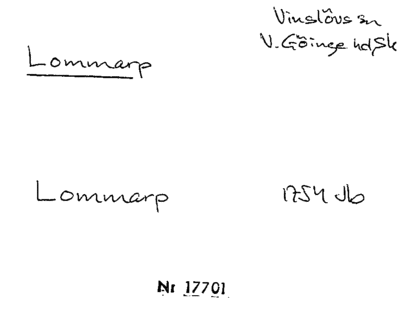 Vinslövs sn
V. Göinge hd Sk
Lommarp
Lommarp 1754 Jb
Nr 17701